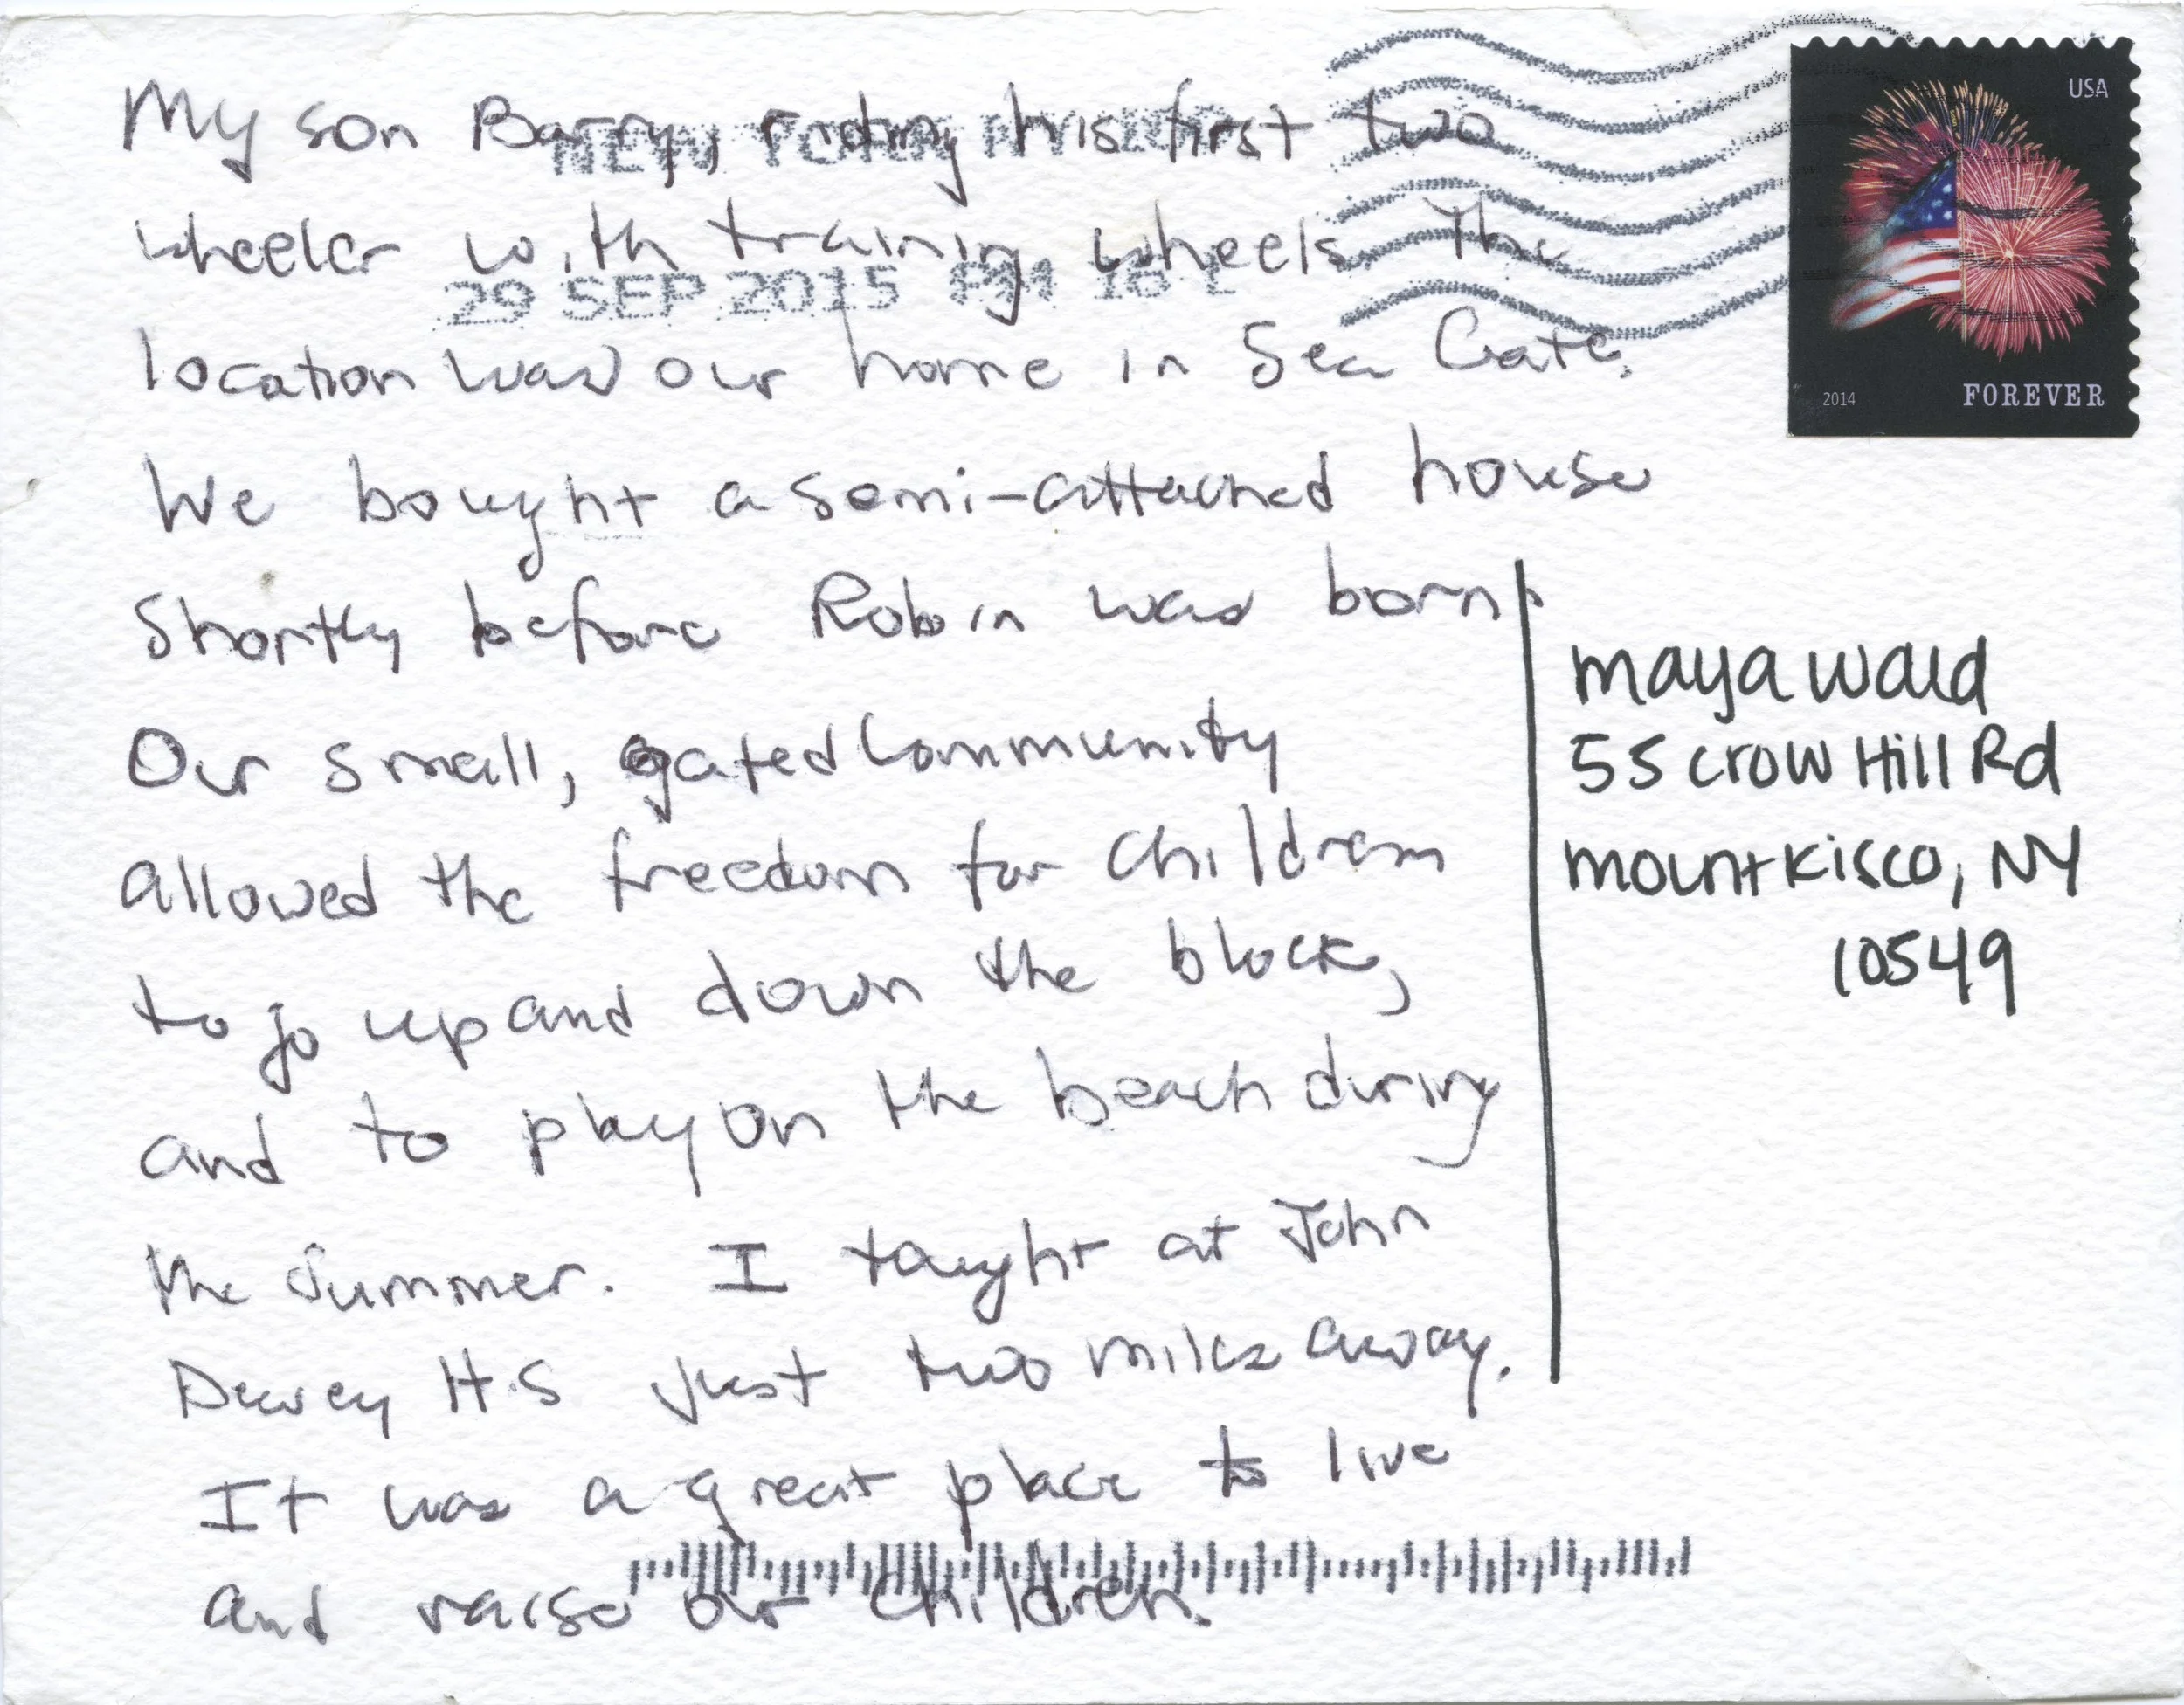 My son Barry, riding his first two
wheeler with training wheels. The
location was our home in Sea Gate.
We bought a semi-attached house
Shortly before Robin was born.
Our small, gated Community
allowed the freedom for children
to go up and down the block,
and to play on the beach during
the Summer. I taught at John
Dewey H.S just two miles away.
It was a great place to live
and raise our children.
NEW YORK NY
29 SEP 2015 PM 16 L
USA
2014 FOREVER
maya wald
55 crow Hill Rd
mount kisco, NY
10549